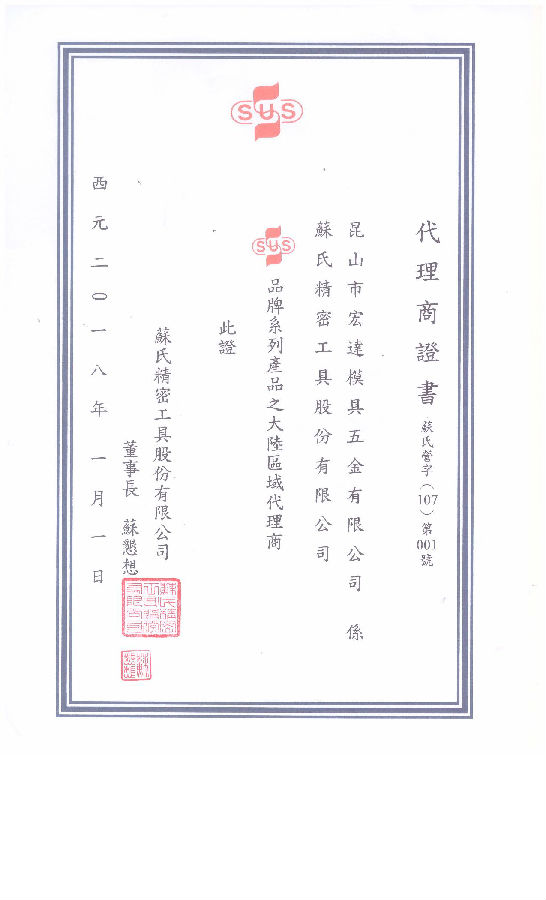 SUS
代理商證書 蘇氏營字(107)第001號
昆山市宏達模具五金有限公司 係
蘇氏精密工具股份有限公司
SUS 品牌系列產品之大陸區域代理商
此證
蘇氏精密工具股份有限公司
董事長 蘇懇想
西元二〇一八年一月一日